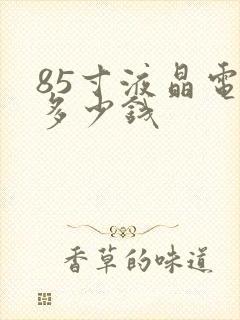 85寸液晶电
多少钱
香草的味道